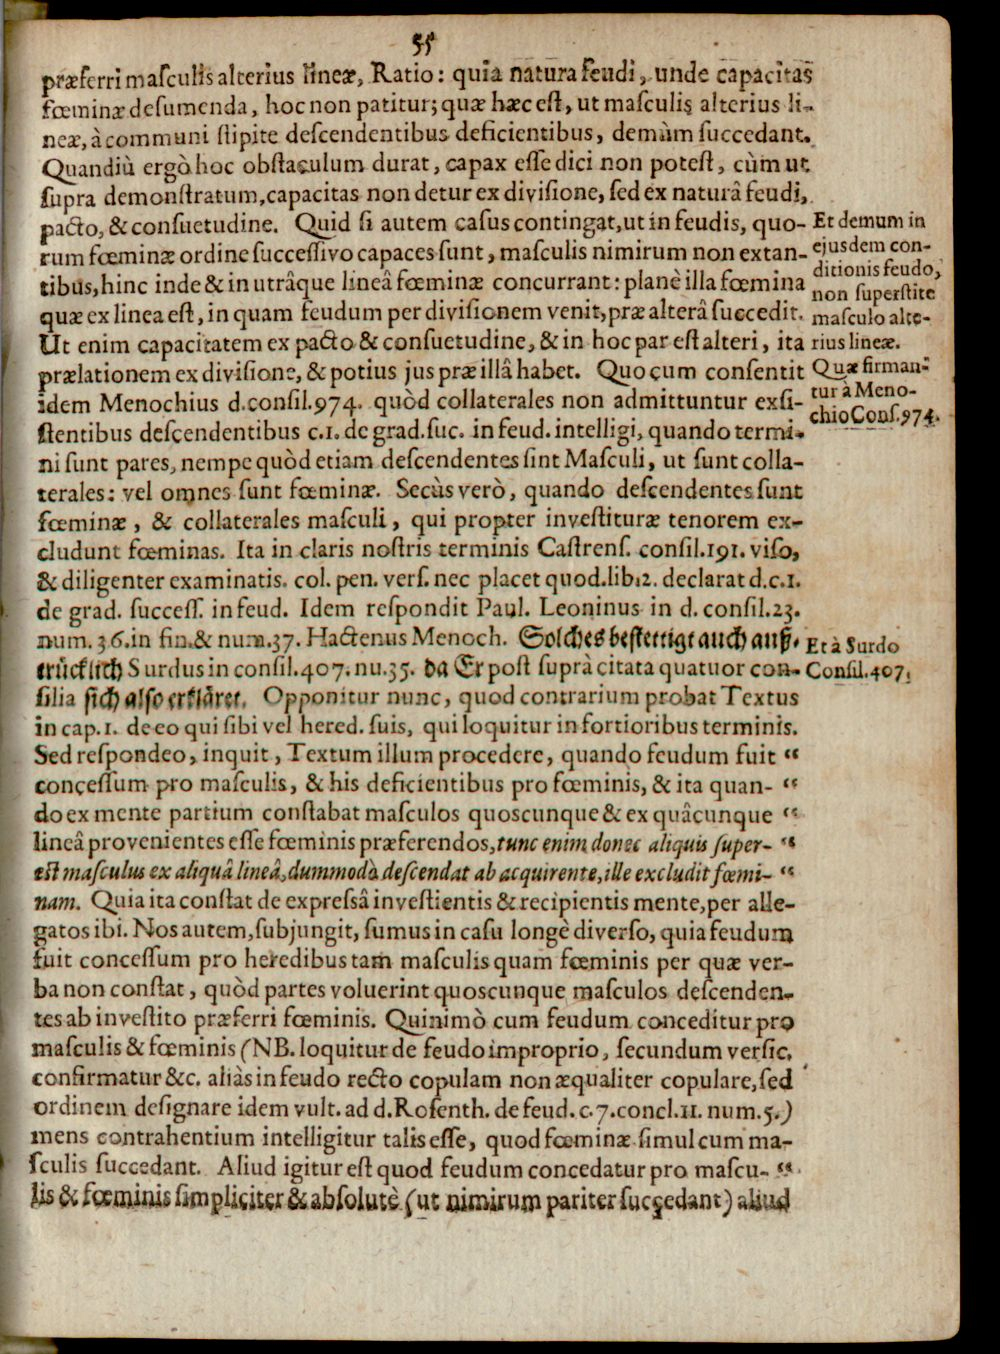 55
præferri maſculis alterius lineæ, Ratio: quia natura feudi, unde capacitas
fœminæ deſumenda, hoc non patitur; quæ hæc eſt, ut maſculis alterius li-
neæ, à communi ſtipite deſcendentibus deficientibus, demùm ſuccedant.
Quandiù ergò hoc obſtaculum durat, capax eſſe dici non poteſt, cùm ut
ſupra demonſtratum, capacitas non detur ex diviſione, ſed ex naturâ feudi,
pacto, & conſuetudine. Quid ſi autem caſus contingat, ut in feudis, quo-
rum fœminæ ordine ſucceſſivo capaces ſunt, maſculis nimirum non extan-
tibus, hinc inde & in utrâque lineâ fœminæ concurrant: planè illa fœmina
quæ ex linea eſt, in quam feudum per diviſionem venit, præ alterâ ſuccedit.
Ut enim capacitatem ex pacto & conſuetudine, & in hoc par eſt alteri, ita
prælationem ex diviſione, & potius jus præ illâ habet. Quocum conſentit
idem Menochius d. conſil. 974. quòd collaterales non admittuntur exſi-
ſtentibus deſcendentibus c. 1. de grad. ſuc. in feud. intelligi, quando termi-
ni ſunt pares, nempe quòd etiam deſcendentes ſint Maſculi, ut ſunt colla-
terales: vel omnes ſunt fœminæ. Secùs verò, quando deſcendentes ſunt
fœminæ, & collaterales maſculi, qui propter inveſtituræ tenorem ex-
cludunt fœminas. Ita in claris noſtris terminis Caſtrenſ. conſil. 191. viſo,
& diligenter examinatis. col. pen. verſ. nec placet quod. lib. 2. declarat d. c. 1.
de grad. ſucceſſ. in feud. Idem reſpondit Paul. Leoninus in d. conſil. 23.
num. 36. in fin. & num. 37. Hactenus Menoch. Solches beſtettigt auch auß-
trücklich Surdus in conſil. 407. nu. 35. da Er poſt ſuprà citata quatuor con-
ſilia ſich alſo erkläret. Opponitur nunc, quod contrarium probat Textus
in cap. 1. de eo qui ſibi vel hered. ſuis, qui loquitur in fortioribus terminis.
Sed reſpondeo, inquit, Textum illum procedere, quando feudum fuit “
conceſſum pro maſculis, & his deficientibus pro fœminis, & ita quan- “
do ex mente partium conſtabat maſculos quoscunque & ex quâcunque “
lineâ provenientes eſſe fœminis præferendos, tunc enim donec aliquis ſuper- “
eſt maſculus ex aliquâ lineâ, dummodò deſcendat ab acquirente, ille excludit fœmi- “
nam. Quia ita conſtat de expreſsâ inveſtientis & recipientis mente, per alle-
gatos ibi. Nos autem, ſubjungit, ſumus in caſu longè diverſo, quia feudum
fuit conceſſum pro heredibus tam maſculis quam fœminis per quæ ver-
ba non conſtat, quòd partes voluerint quoscunque maſculos deſcenden-
tes ab inveſtito præferri fœminis. Quinimò cum feudum conceditur pro
maſculis & fœminis (NB. loquitur de feudo improprio, ſecundum verſic.
confirmatur &c. aliàs in feudo recto copulam non æqualiter copulare, ſed
ordinem deſignare idem vult. ad d. Roſenth. de feud. c. 7. concl. 11. num. 5.)
mens contrahentium intelligitur talis eſſe, quod fœminæ ſimul cum ma-
ſculis ſuccedant. Aliud igitur eſt quod feudum concedatur pro maſcu- “
lis & fœminis ſimpliciter & abſolutè (ut nimirum pariter ſuccedant) aliud
Et demum in
ejusdem con-
ditionis feudo,
non ſuperſtite
maſculo alte-
rius lineæ.
Quæ firman-
tur à Meno-
chio Conſ. 974.
Et à Surdo
Conſil. 407.